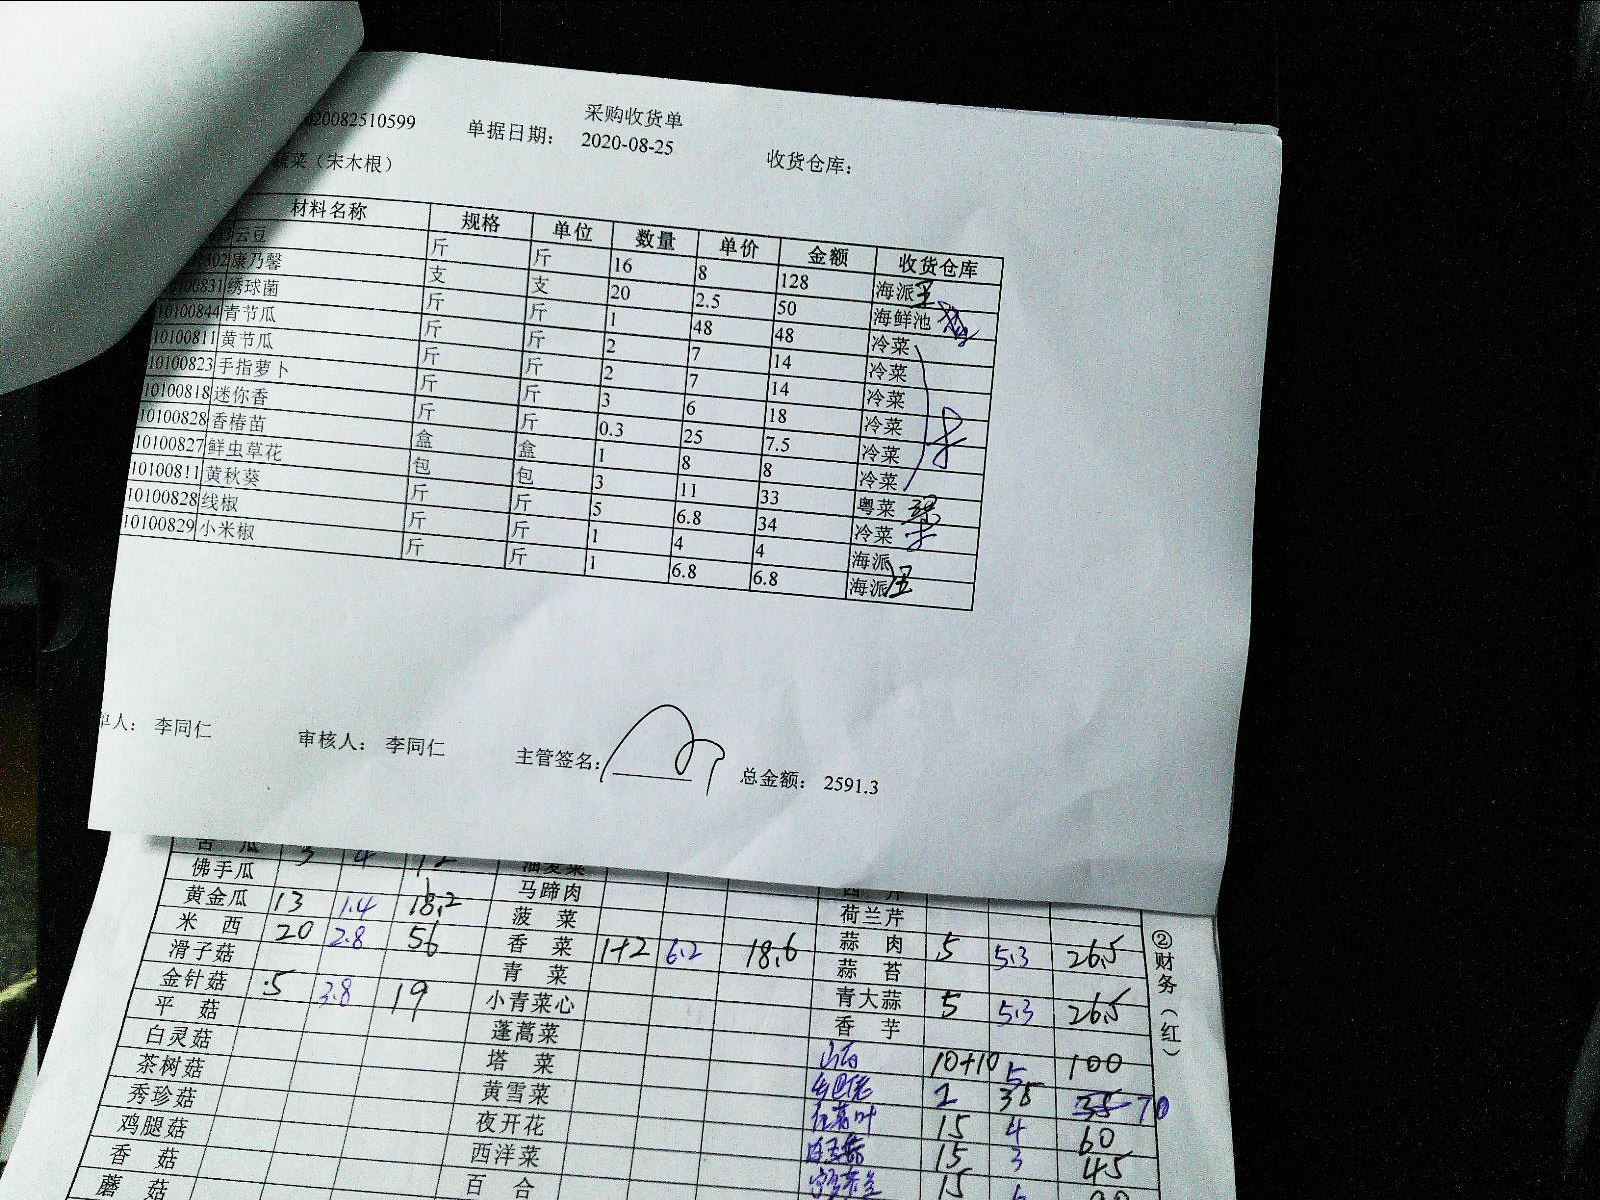 采购收货单
20082510599 单据日期： 2020-08-25 收货仓库：
蔬菜（宋木根）
材料名称 规格 单位 数量 单价 金额 收货仓库
云豆 斤 斤 16 8 128 海派 王
302 康乃馨 支 支 20 2.5 50 海鲜池
0100831 绣球菌 斤 斤 1 48 48 冷菜
10100844 青节瓜 斤 斤 2 7 14 冷菜
10100811 黄节瓜 斤 斤 2 7 14 冷菜
10100823 手指萝卜 斤 斤 3 6 18 冷菜
10100818 迷你香 斤 斤 0.3 25 7.5 冷菜
10100828 香椿苗 盒 盒 1 8 8 冷菜
10100827 鲜虫草花 包 包 3 11 33 粤菜
10100811 黄秋葵 斤 斤 5 6.8 34 冷菜
10100828 线椒 斤 斤 1 4 4 海派
10100829 小米椒 斤 斤 1 6.8 6.8 海派 王
单人： 李同仁 审核人： 李同仁 主管签名： 总金额： 2591.3
苦 瓜 3 4 12 油麦菜 西 芹
佛手瓜 马蹄肉 荷兰芹
黄金瓜 13 1.4 18.2 菠 菜 蒜 肉 5 5.3 26.5
米 西 20 2.8 56 香 菜 1+2 6.2 18.6 蒜 苔
滑子菇 青 菜 青大蒜 5 5.3 26.5
金针菇 5 3.8 19 小青菜心 香 芋
平 菇 蓬蒿菜 山药 10+10 5 100
白灵菇 塔 菜 2 35 70
茶树菇 黄雪菜 15 4 60
秀珍菇 夜开花 15 3 45
鸡腿菇 西洋菜 15
香 菇 百 合
蘑 菇
②财务（红）